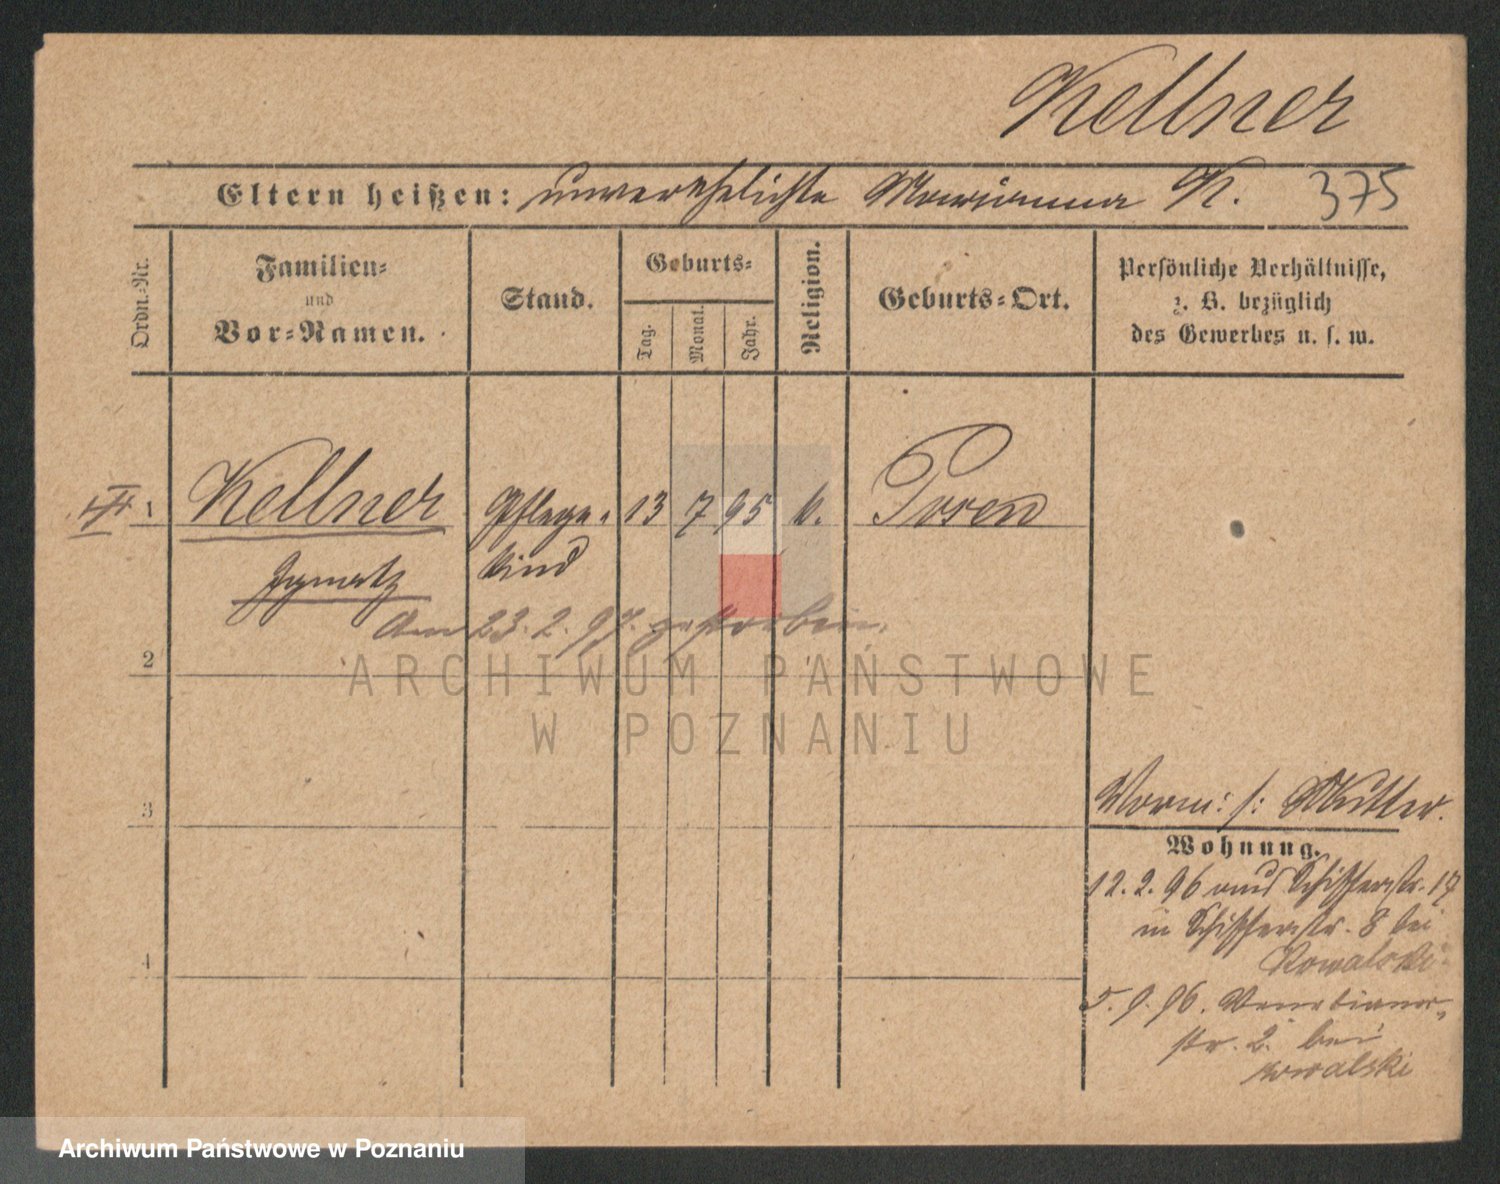 Kellner
Eltern heißen: unverehelichte Marianna K. 375
Ordn.-Nr.
Familien-
und
Vor-Namen.
Stand.
Geburts-
Tag.
Monat.
Jahr.
Religion.
Geburts-Ort.
Persönliche Verhältnisse,
z. B. bezüglich
des Gewerbes u. s. w.
1 Kellner Pflege- 13 7 95 k. Posen
Ignatz kind
Am 23.2.97. gestorben.
2
3
4
Vorm: s: Mutter.
Wohnung.
12.2.96 aus Schifferstr. 17
in Schifferstr. 8 bei
Kowalski
5.9.96. Venetianer-
str. 2. bei
ARCHIWUM PAŃSTWOWE
W POZNANIU
Archiwum Państwowe w Poznaniu